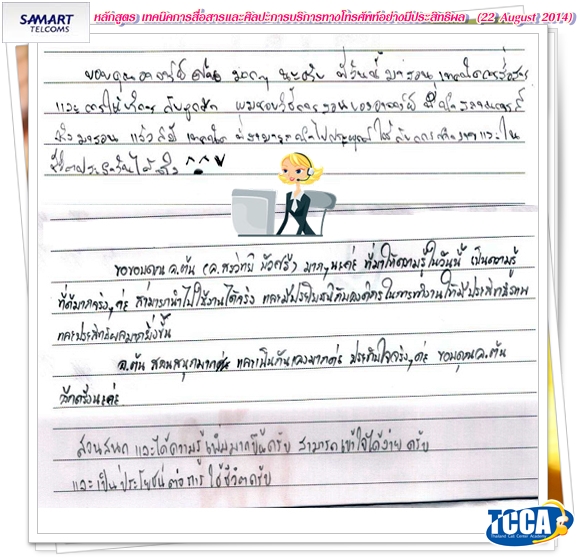 SAMART
TELCOMS
หลักสูตร เทคนิคการสื่อสารและศิลปะการบริการทางโทรศัพท์อย่างมีประสิทธิผล (22 August 2014)
ขอบคุณอาจารย์ต้น มากๆ นะครับ ที่วันนี้มาสอนเทคนิคการสื่อสาร
และการให้บริการกับลูกค้า ผมชอบวิธีการสอนของอาจารย์
มาสอน แล้วก็มี เทคนิค ที่สามารถนำไปประยุกต์ใช้กับการทำงานและใน
ชีวิตประจำวันได้จริง ^^
ขอขอบคุณ อ.ต้น (อ. มากๆ นะค่ะ ที่มาให้ความรู้ในวันนี้ เป็นความรู้
ที่ดีมากจริงๆ ค่ะ สามารถนำไปใช้งานได้จริง และมีประโยชน์กับองค์กรในการทำงานให้มีประสิทธิภาพ
และประสิทธิผลมากยิ่งขึ้น
อ.ต้น สอนสนุกมากค่ะ และเป็นกันเองมากค่ะ ประทับใจจริงๆ ค่ะ ขอบคุณอ.ต้น
อีกครั้งนะค่ะ
สอนสนุก และได้ความรู้เพิ่มมากขึ้นครับ สามารถเข้าใจได้ง่ายครับ
และเป็นประโยชน์ต่อการใช้ชีวิตครับ
TCCA
Thailand Call Center Academy